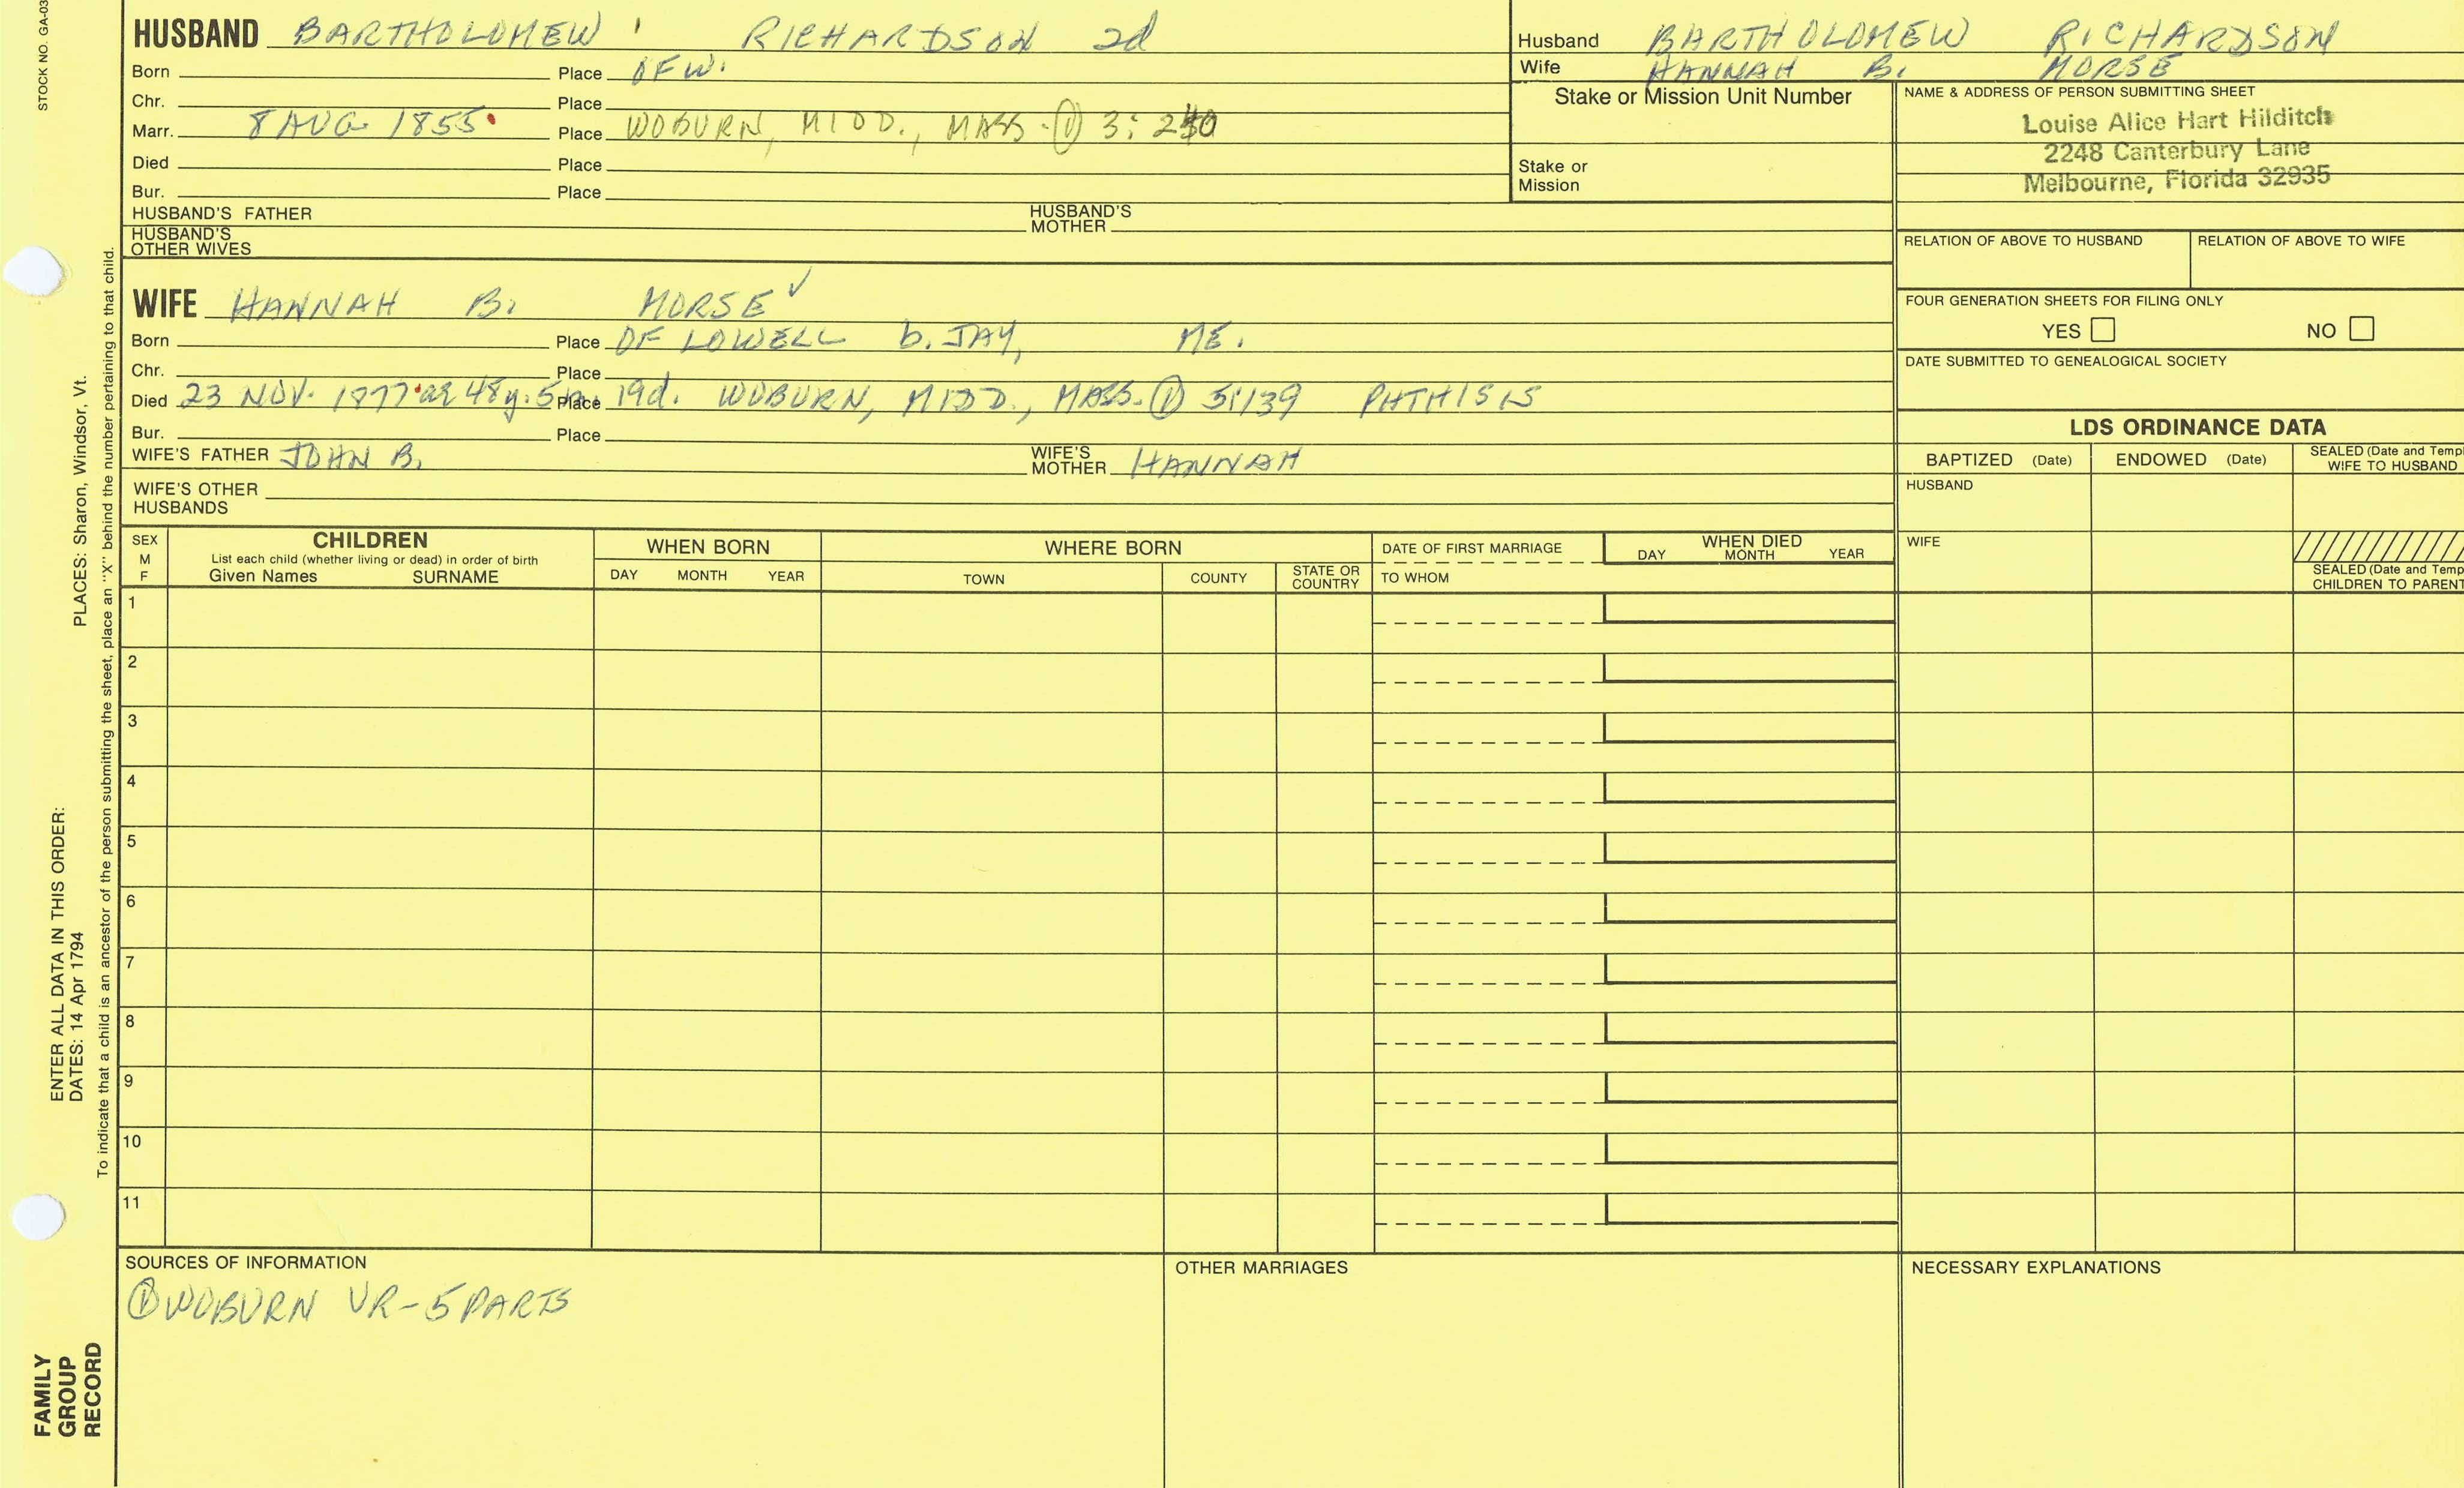 STOCK NO. GA-03
HUSBAND BARTHOLOMEW RICHARDSON 2d
Born Place OF W.
Chr. Place
Marr. 8 AUG 1855 Place WOBURN, MIDD., MASS. ① 3:
Died Place
Bur. Place
HUSBAND'S FATHER HUSBAND'S MOTHER
HUSBAND'S OTHER WIVES
Husband BARTHOLOMEW RICHARDSON
Wife HANNAH B. MORSE
Stake or Mission Unit Number
Stake or
Mission
NAME & ADDRESS OF PERSON SUBMITTING SHEET
Louise Alice Hart Hilditch
2248 Canterbury Lane
Melbourne, Florida 32935
RELATION OF ABOVE TO HUSBAND RELATION OF ABOVE TO WIFE
FOUR GENERATION SHEETS FOR FILING ONLY
YES NO
DATE SUBMITTED TO GENEALOGICAL SOCIETY
WIFE HANNAH B. MORSE ✓
Born Place OF LOWELL b. JAY, ME.
Chr. Place
Died 23 NOV. 1877 ae 48y. 5m. Place 19d. WOBURN, MIDD., MASS. ① 5:139 PHTHISIS
Bur. Place
WIFE'S FATHER JOHN B. WIFE'S MOTHER HANNAH
WIFE'S OTHER
HUSBANDS
LDS ORDINANCE DATA
BAPTIZED (Date) ENDOWED (Date) SEALED (Date and Temp
WIFE TO HUSBAND
HUSBAND
WIFE
SEALED (Date and Temp
CHILDREN TO PARENT
SEX
M
F
CHILDREN
List each child (whether living or dead) in order of birth
Given Names SURNAME
WHEN BORN
DAY MONTH YEAR
WHERE BORN
TOWN COUNTY STATE OR COUNTRY
DATE OF FIRST MARRIAGE
TO WHOM
WHEN DIED
DAY MONTH YEAR
1
2
3
4
5
6
7
8
9
10
11
SOURCES OF INFORMATION
① WOBURN VR-5 PARTS
OTHER MARRIAGES
NECESSARY EXPLANATIONS
PLACES: Sharon, Windsor, Vt.
ENTER ALL DATA IN THIS ORDER:
DATES: 14 Apr 1794
To indicate that a child is an ancestor of the person submitting the sheet, place an "X" behind the number pertaining to that child.
FAMILY
GROUP
RECORD